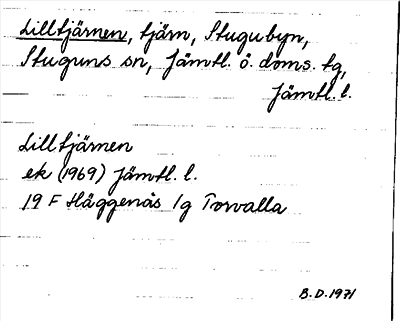 Lilltjärnen, tjärn, Stugubyn,
Stuguns sn, Jämtl. ö. doms. tg,
Jämtl. l.
Lilltjärnen
ek (1969) Jämtl. l.
19 F Häggenås 1g Torvalla
B.D. 1971